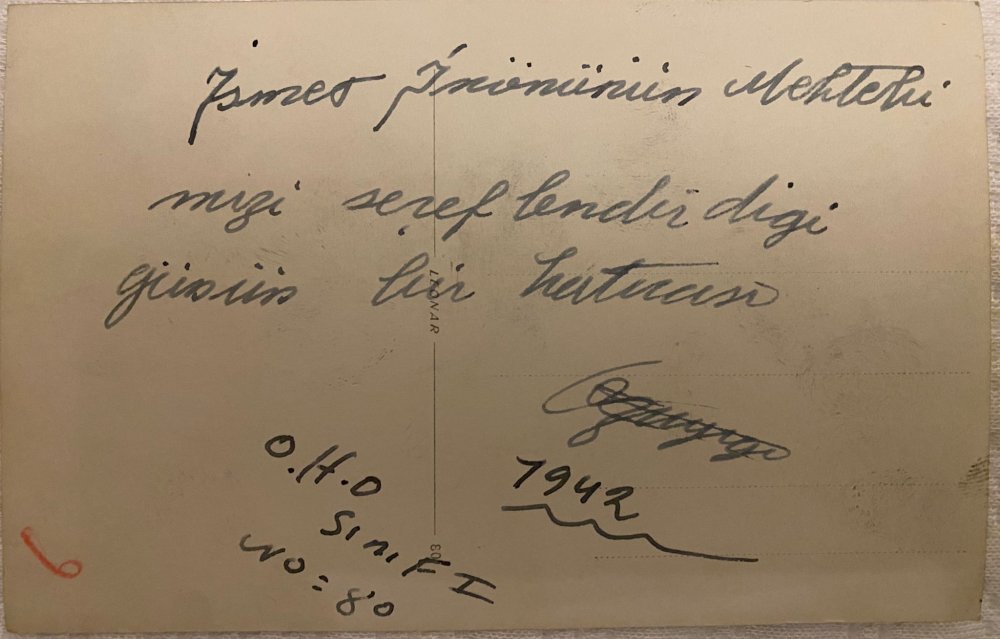 İsmet İnönünün Mektebi
mizi şereflendirdigi
günün bir hatırası
LEONAR
1942
O.H.O
Sınıf I
NO: 80
6